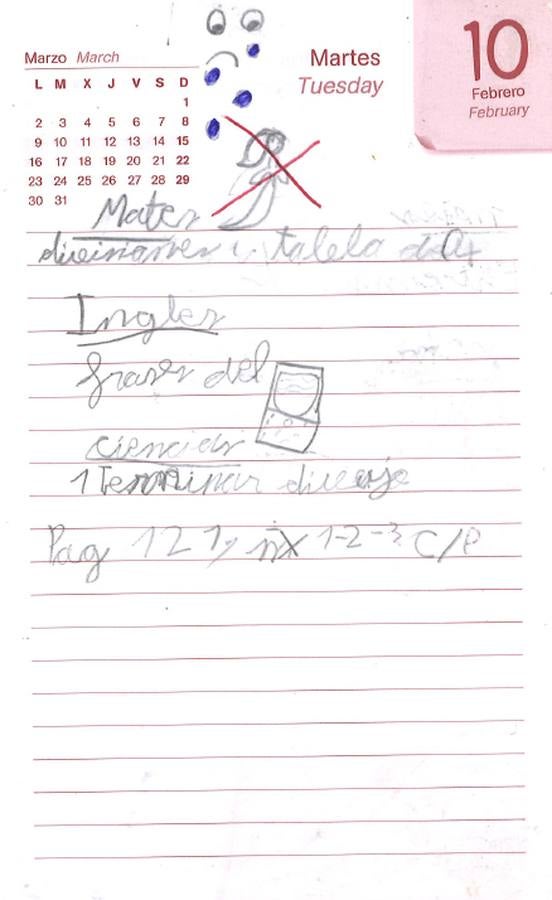 Marzo March
L M X J V S D
1
2 3 4 5 6 7 8
9 10 11 12 13 14 15
16 17 18 19 20 21 22
23 24 25 26 27 28 29
30 31
Martes
Tuesday
10
Febrero
February
Mates
diviciones i tabla
Ingles
frases del
ciencias
1 Terminar
Pag 121, nx 1-2-3 C/P